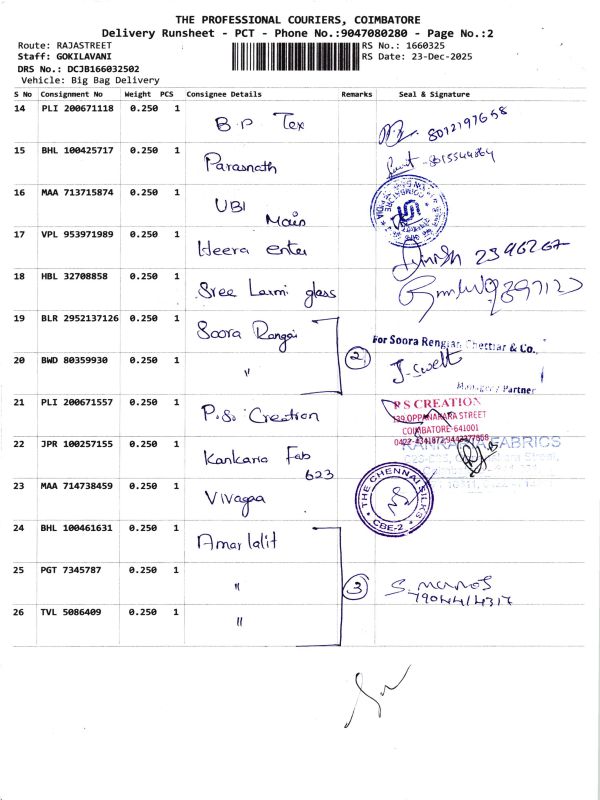 THE PROFESSIONAL COURIERS, COIMBATORE
Delivery Runsheet - PCT - Phone No.:9047080280 - Page No.:2
Route: RAJASTREET
RS No.: 1660325
Staff: GOKILAVANI
RS Date: 23-Dec-2025
DRS No.: DCJB166032502
Vehicle: Big Bag Delivery
S No Consignment No Weight PCS Consignee Details Remarks Seal & Signature
14 PLI 200671118 0.250 1 B.P. Tex 8072197658
15 BHL 100425717 0.250 1 Parasnath
16 MAA 713715874 0.250 1 UBI
Main
17 VPL 953971989 0.250 1 Heera enter
18 HBL 32708858 0.250 1 Sree Laxmi glass
19 BLR 2952137126 0.250 1 Soora Rangai
For Soora Rengian Chettiar & Co.,
20 BWD 80359930 0.250 1 " 2
Managing Partner
21 PLI 200671557 0.250 1 P.S. Creation
P S CREATION
139 OPPANAKARA STREET
COIMBATORE-641001
22 JPR 100257155 0.250 1 Kankaria Fab
623
KANKARIA FABRICS
23 MAA 714738459 0.250 1 Vivagaa
THE CHENNAI SILKS
CBE-2
24 BHL 100461631 0.250 1 Amar lalit
25 PGT 7345787 0.250 1 " 3
S. manoj
7904414317
26 TVL 5086409 0.250 1 "